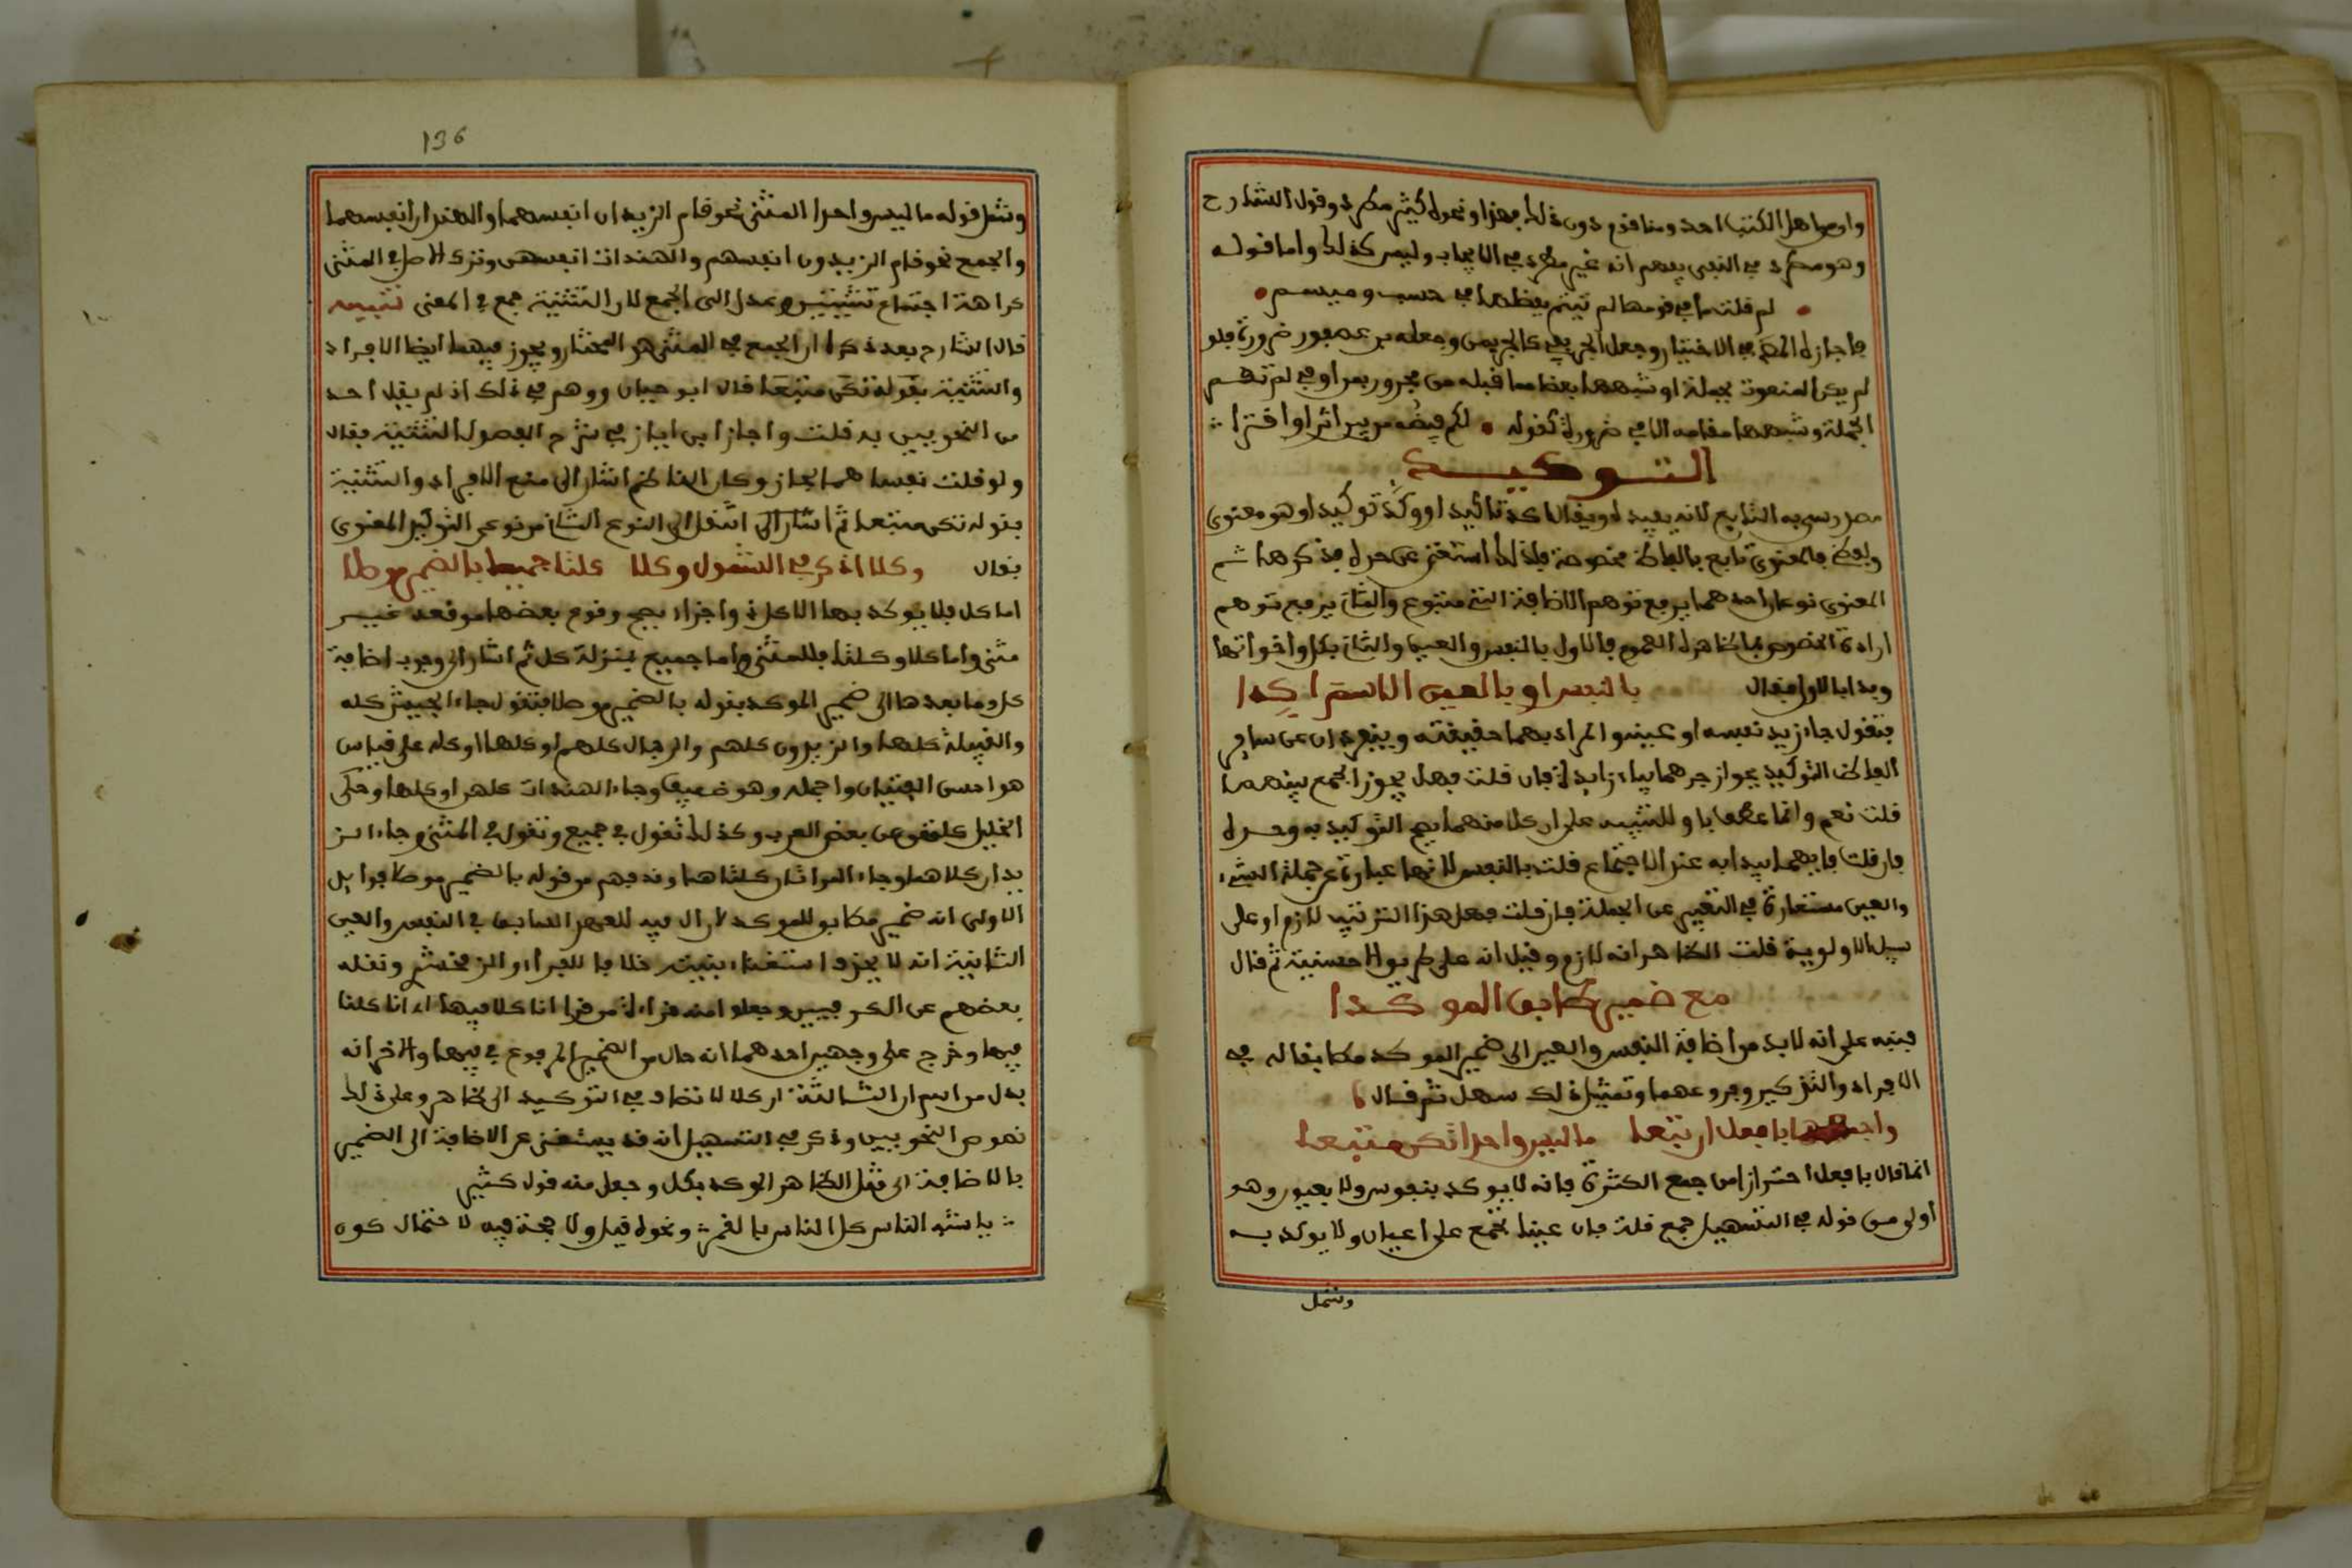 وان من اهل الكتاب احد ومنا فدع دون ذلك بهذا ونحوه كثير مطرد وقول الشارح
وهو مطرد في النفي يوهم انه غير مطرد في الايجاب وليس كذلك واما قوله
لو قلت ما في قومها لم تيثم يفضلها في حسب وميسم
لم يكن المنعوت بجملة او شبهها بعضا مما قبله من مجرور بمن او في لم تقم
الجملة وشبهها مقامه الا في ضرورة كقوله لكم قبصه من بين اثرا واقترا
التوكيد
مصدر سمي به التابع لانه يفيده ويقال اكد تاكيدا ووكد توكيدا وهو معنوي
ولفظي فالمعنوي تابع بالفاظ مخصوصة فلذلك استغنى عن حده بذكرها ثم
المعنوي نوعان احدهما يرفع توهم الاضافة الى متبوع والثاني يرفع توهم
ارادة الخصوص بما ظاهره العموم فالاول بالنفس والعين والثاني بكل واخواتها
وبدا بالاول فقال بالنفس او بالعين الاسم اكدا
فتقول جاء زيد نفسه او عينه والمراد بهما حقيقته وينفردان عن ساير
الفاظ التوكيد بجواز جرهما بباء زايدة فان قلت فهل يجوز الجمع بينهما
قلت نعم وانما عطف باو للتنبيه على ان كلا منهما يقع التوكيد به وحده
فان قلت فايهما يبدا به عند الاجتماع قلت بالنفس لانها عبارة عن جملة الشيء
والعين مستعارة في التعبير عن الجملة فان قلت فهل هذا الترتيب لازم او على
سبيل الاولوية قلت الظاهر انه لازم وقيل انه على طريق الاحسنية ثم قال
مع ضمير طابق الموكدا
فنبه على انه لا بد من اضافة النفس والعين الى ضمير الموكد مطابقا له في
الافراد والتذكير وفروعهما وتمثيل ذلك سهل ثم قال
واجمعهما بافعل ان تبعا ما ليس واحدا تكن متبعا
انما قال بافعل احترازا من جمع الكثرة فانه لا يوكد بنفوس ولا بعيون وهو
اولى من قوله في التسهيل جمع قلة فان عينا تجمع على اعيان ولا يوكد به
وشمل
136
وشمل قوله ما ليس واحدا المثنى نحو قام الزيدان انفسهما والهندان انفسهما
والجمع نحو قام الزيدون انفسهم والهندات انفسهن وترك الاصل في المثنى
كراهة اجتماع تثنيتين وعدل الى الجمع لان التثنية جمع في المعنى تنبيه
قال الشارح بعد ذكره ان الجمع في المثنى هو المختار ويجوز فيهما ايضا الافراد
والتثنية بقوله تكن متبعا قال ابو حيان ووهم في ذلك اذ لم يقل احد
من النحويين به قلت واجاز ابن اياز في شرح الفصول التثنية فقال
ولو قلت نفساهما لجاز وكان الناظم اشار الى منع الافراد والتثنية
بقوله تكن متبعا ثم انتقل الى النوع الثاني من نوعي التوكيد المعنوي
فقال وكلا اذكر في الشمول وكلا كلتا جميعا بالضمير موصلا
اما كل فلا يوكد بها الا كل ذو اجزاء يصح وقوع بعضها موقعه غير
مثنى واما كلا وكلتا فللمثنى واما جميع فبمنزلة كل ثم اشار الى وجوب اضافة
كل وما بعدها الى ضمير الموكد بقوله بالضمير موصلا فتقول جاء الجيش كله
والقبيلة كلها والزيدون كلهم والرجال كلهم او كلها او كله على قياس
هو احسن الفتيان واجمله وهو ضعيف وجاء الهندات كلهن او كلها وحكى
الخليل كلتهن عن بعض العرب وكذلك تقول في جميع وتقول في المثنى جاء الز
يدان كلاهما وجاء المراتان كلتاهما وقد فهم من قوله بالضمير موصلا فوايد
الاولى انه ضمير مطابق للموكد لان ال فيه للعهد السابق في النفس والعين
الثانية انه لا يحذف استغناء بنيته خلافا للفراء والزمخشري ونقله
بعضهم عن الكوفيين وجعلوا منه قراءة من قرا انا كلا فيها اي انا كلنا
فيها وخرج على وجهين احدهما انه حال من الضمير المرفوع في فيها والاخر انه
بدل من اسم ان الثالثة ان كلا لا تضاف في التوكيد الى ظاهر وعلى ذلك
نصوص النحويين وذكر في التسهيل انه قد يستغنى عن الاضافة الى الضمير
بالاضافة الى مثل الظاهر الموكد بكل وجعل منه قول كثير
يا اشبه الناس كل الناس بالقمر ونحوه قيل ولا حجة فيه لاحتمال كون